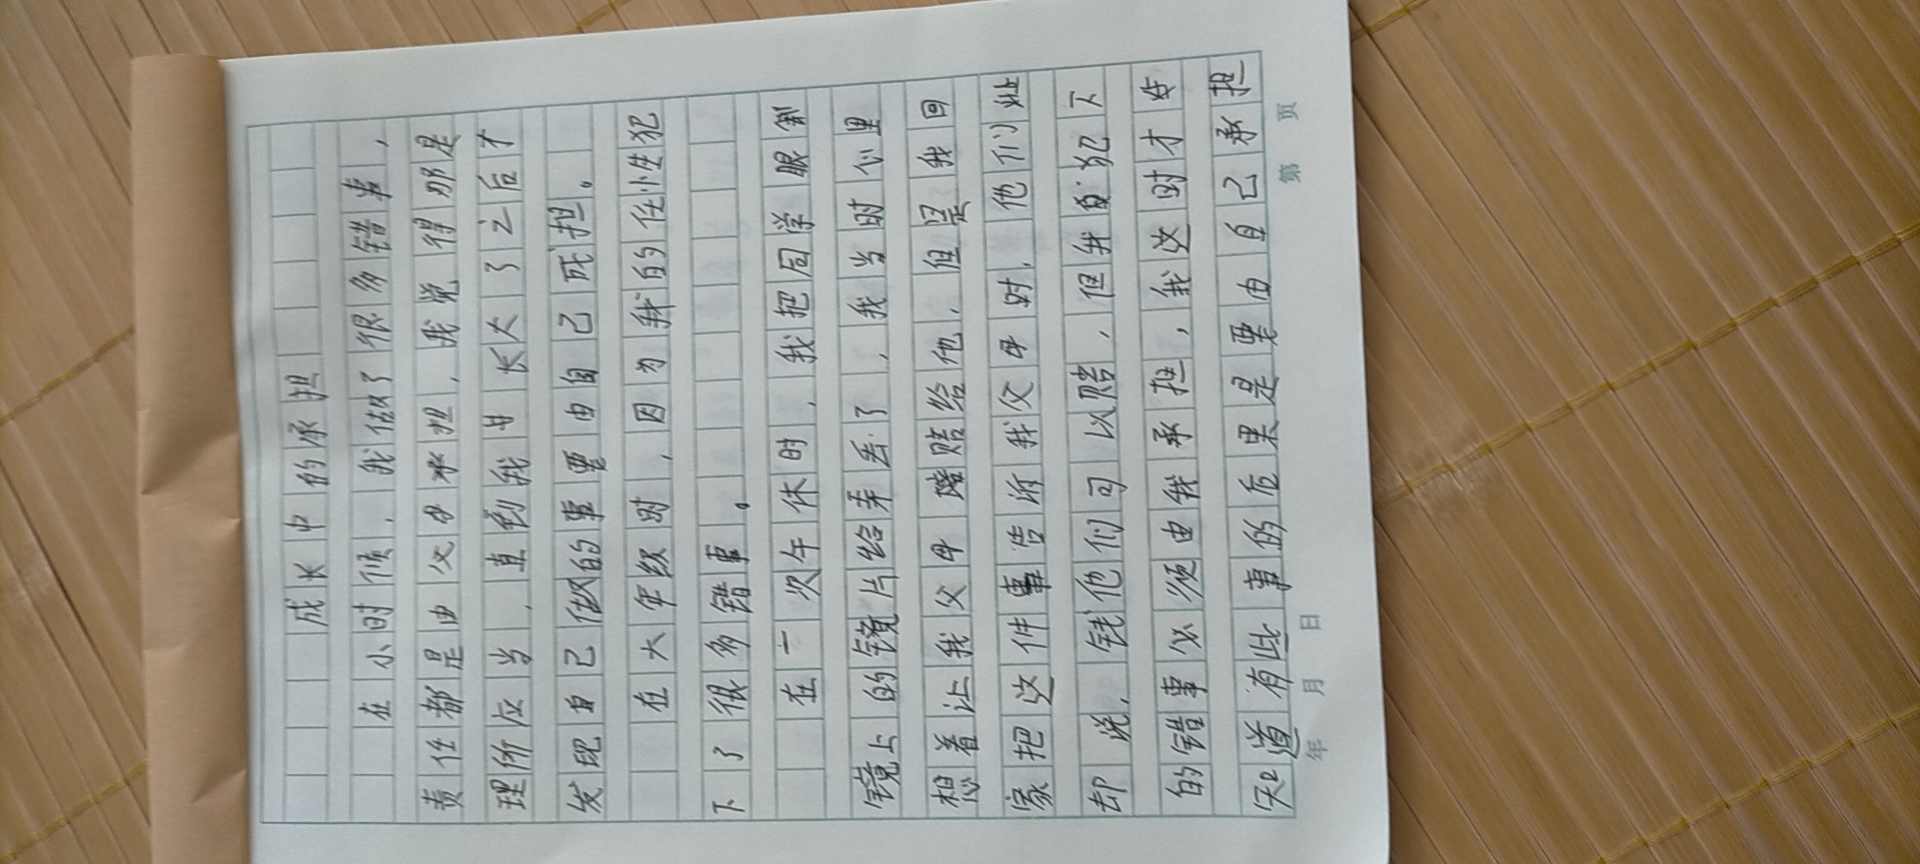 成长中的承担
在小时候，我做了很多错事，
责任都是由父母承担，我觉得那是
理所应当，直到我长大了之后才
发现自己做的事要由自己成担。
在大年级时，因为我的任小性犯
下了很多错事。
在一次午休时，我把同学眼镜
镜上的镜片给弄丢了，我当时心里
想着让我父母赔给他，但是我回
家把这件事告诉我父母时，他们
却说，钱他们可以赔，但我犯下
的错事必须由我承担，我这时才
知道有些事的后果是要由自己承担
年 月 日 第 页